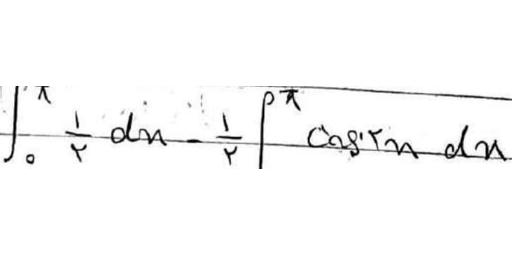 ∫₀^π ۱/۲ dx - ۱/۲ ∫^π cos۲x dx